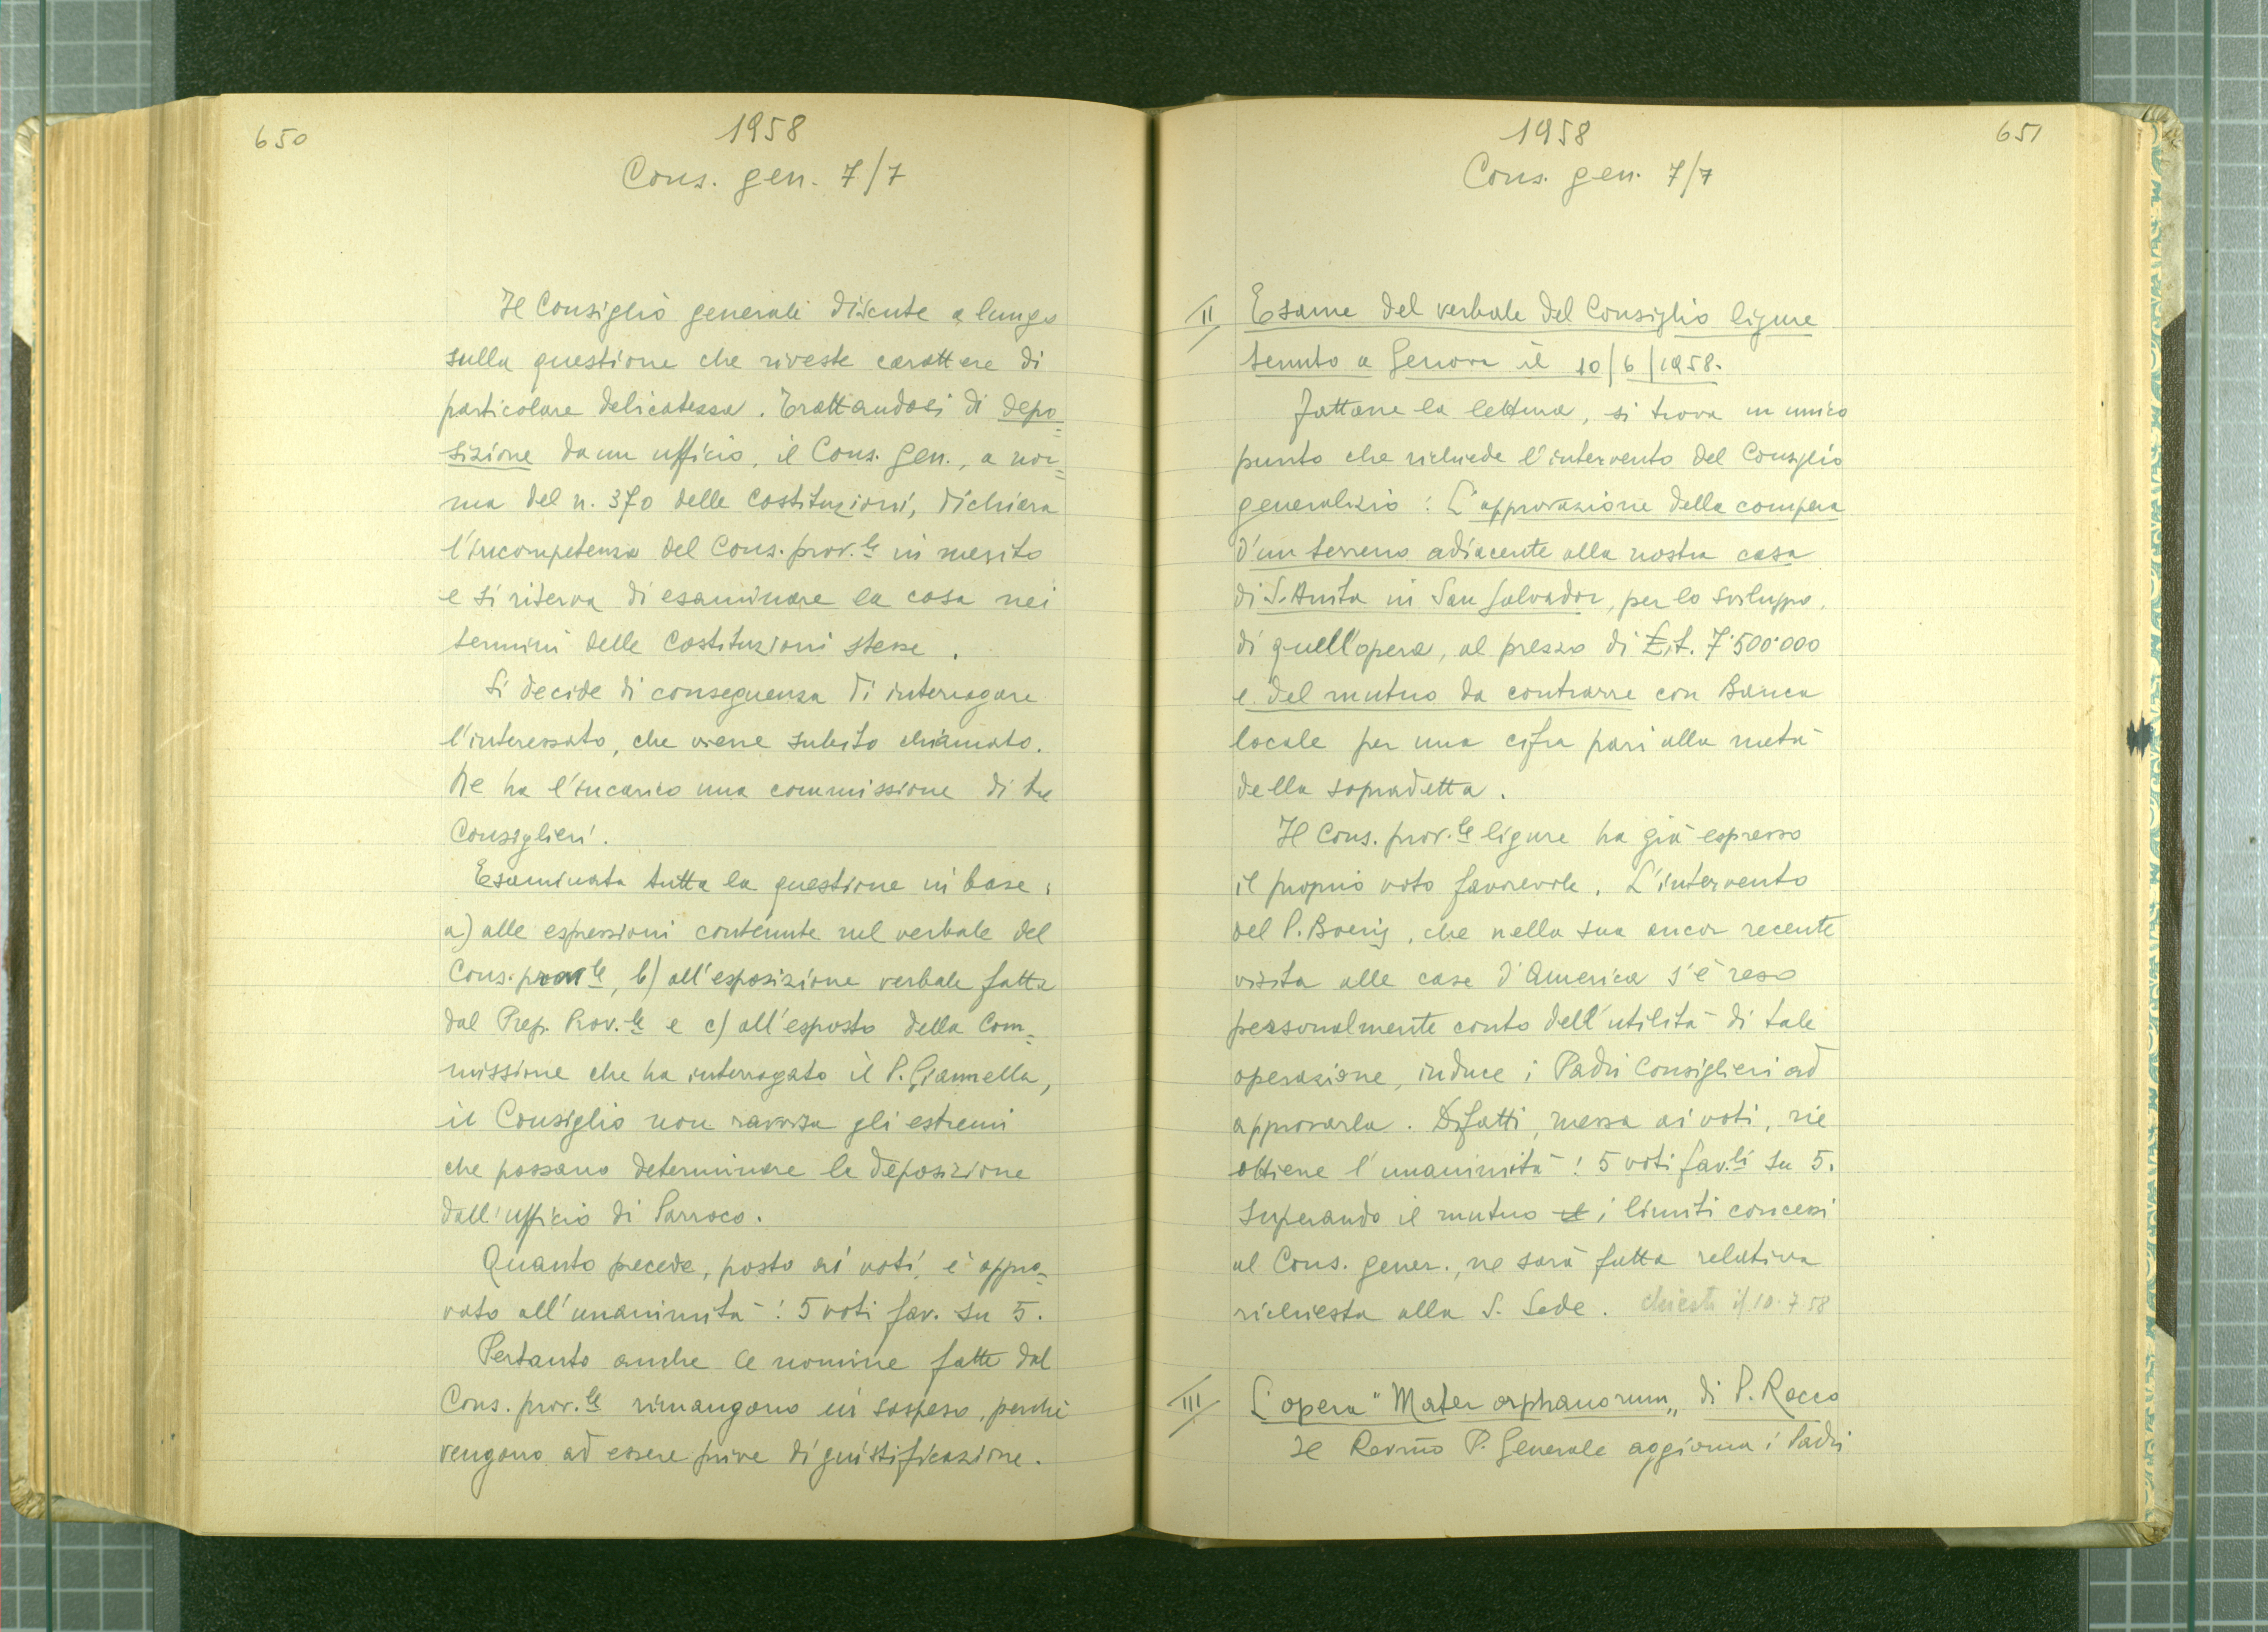 650
1958
Cons. gen. 7/7
Il Consiglio generale discute a lungo
sulla questione che riveste carattere di
particolare delicatezza. Trattandosi di depo=
sizione da un ufficio, il Cons. gen., a nor=
ma del n. 370 delle Costituzioni, dichiara
l'incompetenza del Cons. prov.le in merito
e si riserva di esaminare la cosa nei
termini delle Costituzioni stesse.
Si decide di conseguenza di interrogare
l'interessato, che viene subito chiamato.
Ne ha l'incarico una commissione di tre
Consiglieri.
Esaminata tutta la questione in base:
a) alle espressioni contenute nel verbale del
Cons. prov.le, b) all'esposizione verbale fatta
dal Prep. Prov.le e c) all'esposto della Com=
missione che ha interrogato il P. Giannella,
il Consiglio non ravvisa gli estremi
che possano determinare la deposizione
dall'ufficio di Parroco.
Quanto precede, posto ai voti, è appro=
vato all'unanimità: 5 voti fav. su 5.
Pertanto anche le nomine fatte dal
Cons. prov.le rimangono in sospeso, perché
vengono ad essere prive di giustificazione.
651
1958
Cons. gen. 7/7
II Esame del verbale del Consiglio ligure
tenuto a Genova il 10/6/1958.
Fattane la lettura, si trova un unico
punto che richiede l'intervento del Consiglio
generalizio: L'approvazione della compera
d'un terreno adiacente alla nostra casa
di S. Anita in San Salvador, per lo sviluppo
di quell'opera, al prezzo di £.it. 7.500.000
e del mutuo da contrarre con Banca
locale per una cifra pari alla metà
della sopradetta.
Il Cons. prov.le ligure ha già espresso
il proprio voto favorevole. L'intervento
del P. Boeris, che nella sua ancor recente
visita alle case d'America s'è reso
personalmente conto dell'utilità di tale
operazione, induce i Padri Consiglieri ad
approvarla. Difatti, messa ai voti, ne
ottiene l'unanimità: 5 voti fav.li su 5.
Superando il mutuo il i limiti concessi
al Cons. gener., ne sarà fatta relativa
richiesta alla S. Sede. chiesta il 10.7.58
III L'opera "Mater orphanorum" di P. Rocco
Il Rev.mo P. Generale aggiorna i Padri